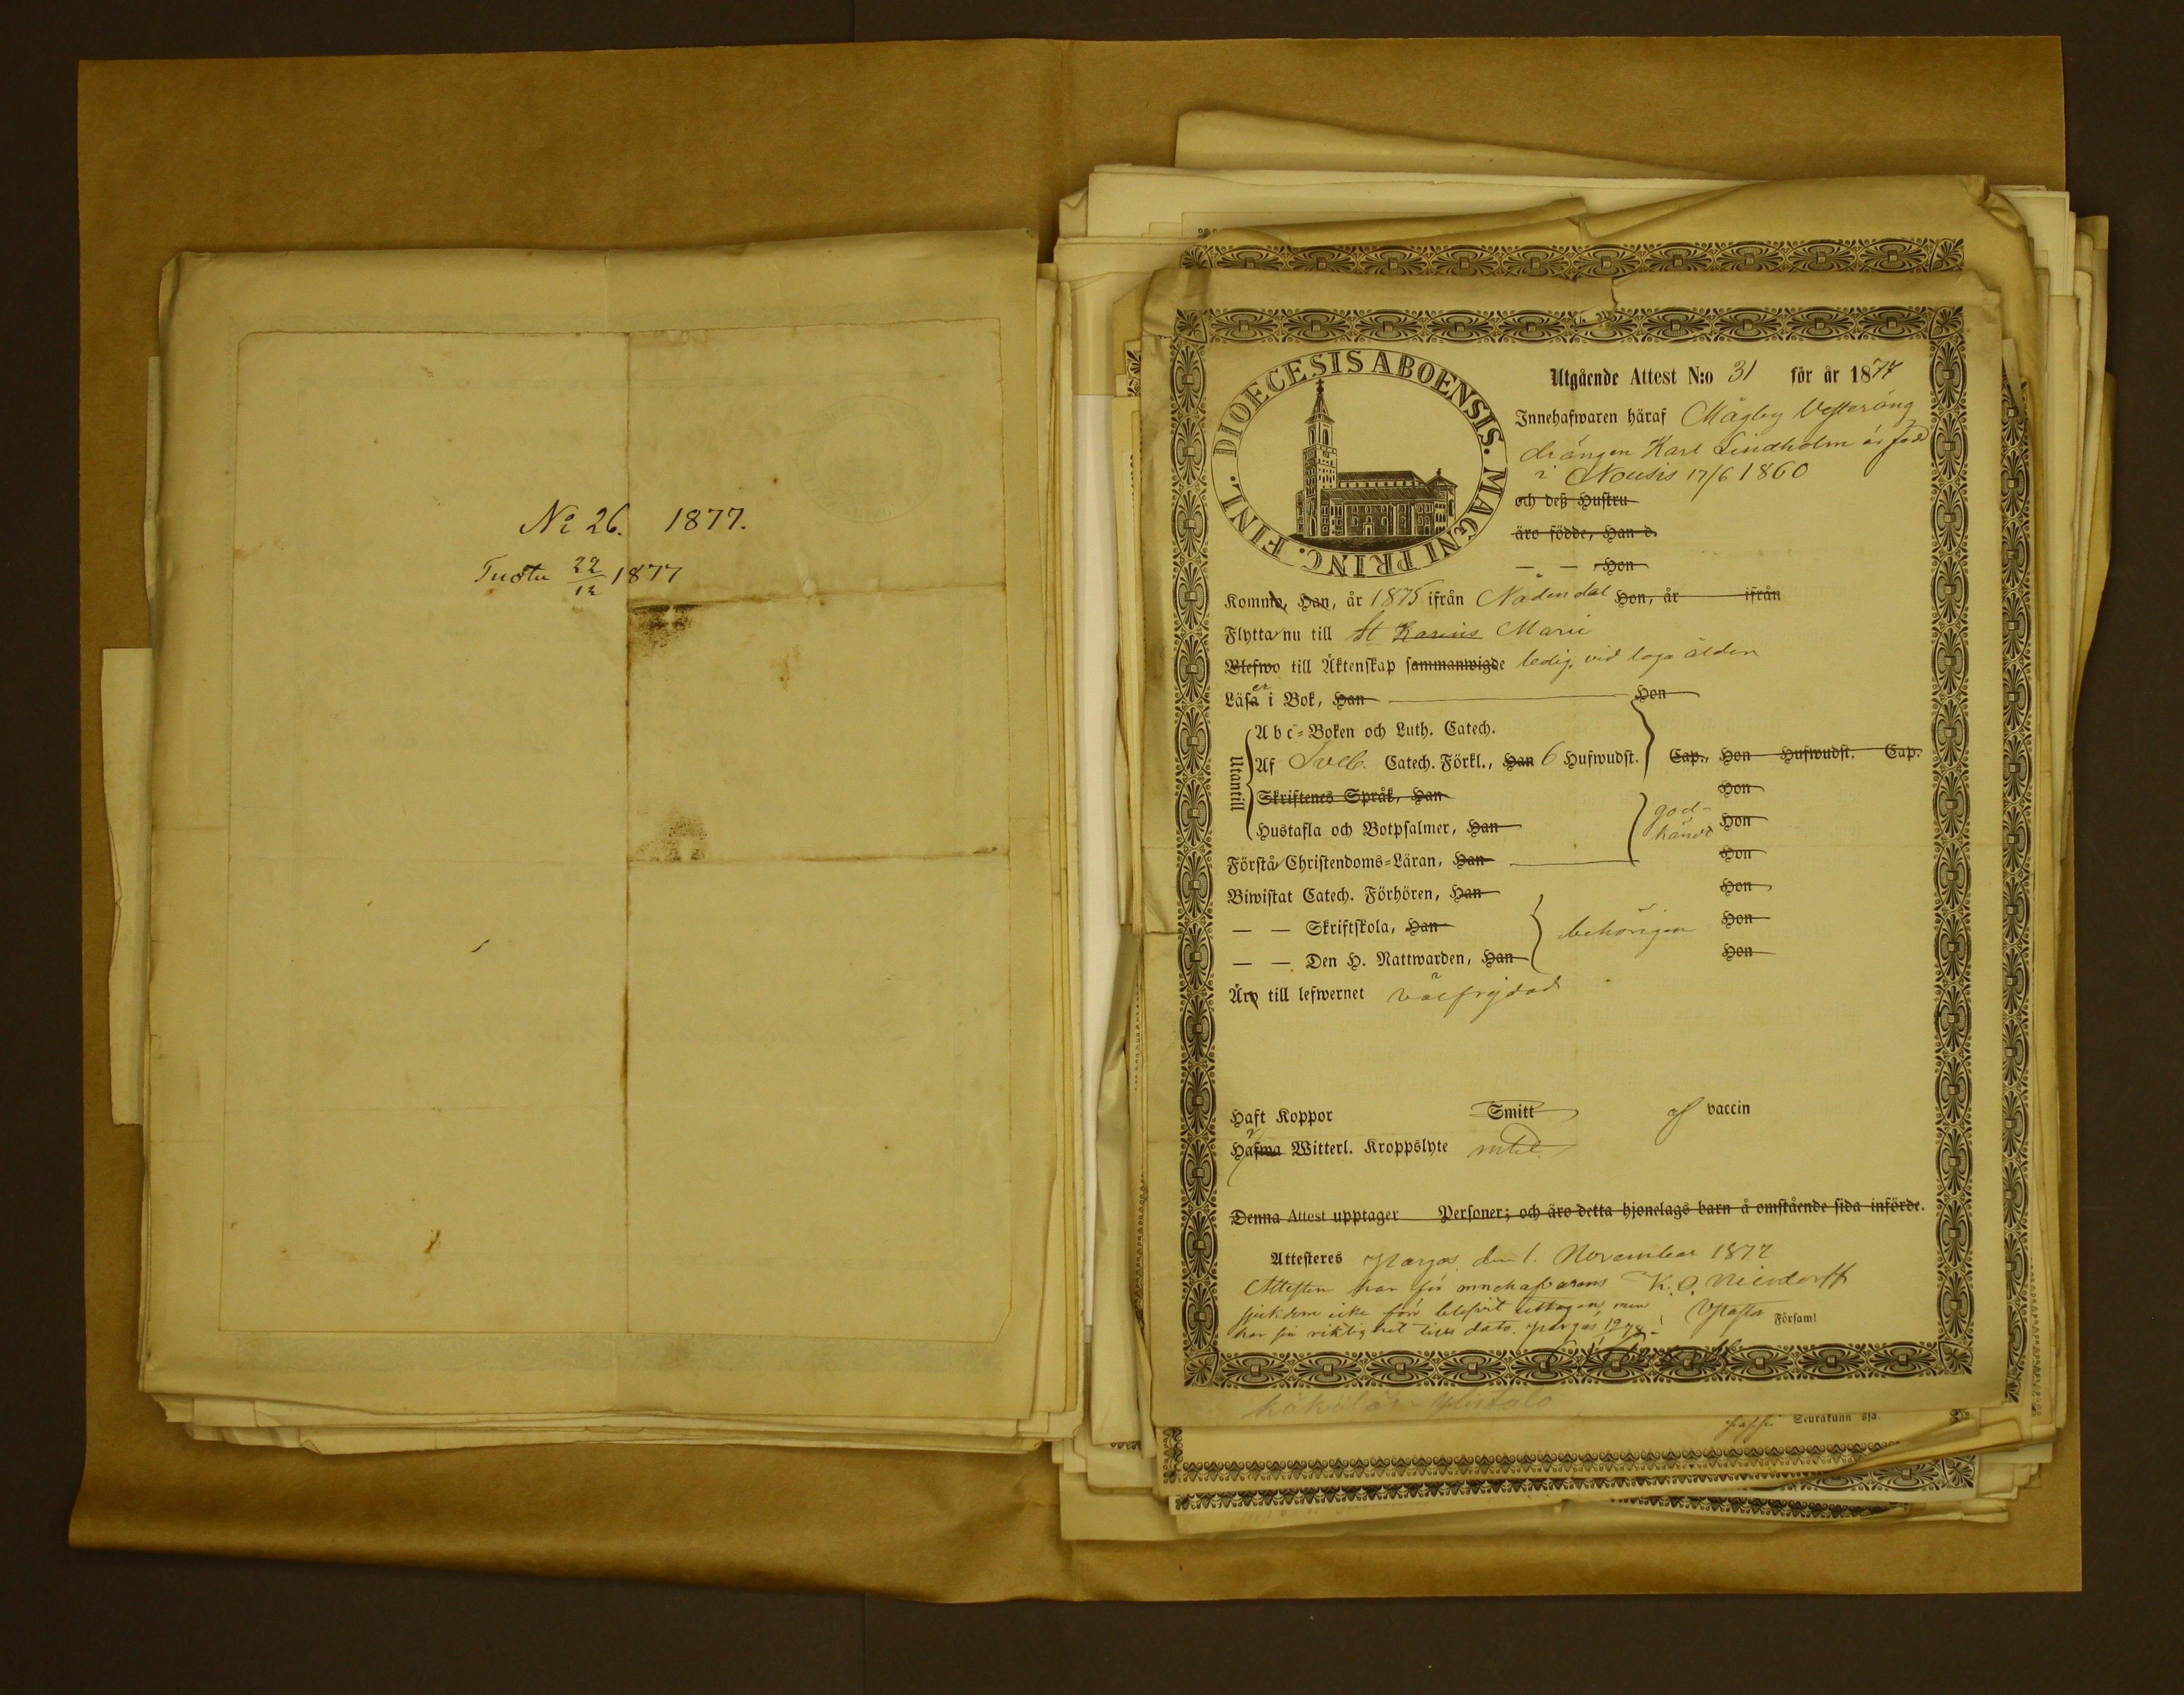 No 26. 1877.
Tuotu 22/12 1877
DIOECESIS ABOENSIS. MAGNI PRINC. FINL.
Utgående Attest N:o 31 för år 1877
Innehafwaren häraf Mågby Vesteräng
drängen Karl Lindholm är född
i Nousis 17/6 1860
och deß Hustru
äro födde, Han d.
— — Hon
Komma, Han, år 1875 ifrån Nådendal Hon, år ifrån
Flytta nu till St Karins Marie
Blefwo till Äktenskap sammanwigde ledig, vid laga ålder
Läsa er i Bok, Han Hon
Utantill
Abc-Boken och Luth. Catech.
Af Sveb. Catech. Förkl., Han 6 Hufwudst. Cap., Hon Hufwudst. Cap.
Skriftenes Språk, Han Hon
Hustafla och Botpsalmer, Han god-känd Hon
Förstå Christendoms-Läran, Han Hon
Biwistat Catech. Förhören, Han Hon
— — Skriftskola, Han behörigen Hon
— — Den H. Nattwarden, Han Hon
Äro till lefwernet välfrejdad
Haft Koppor Smitt af vaccin
Hafwa Witterl. Kroppslyte intet.
Denna Attest upptager Personer; och äro detta hjonelags barn å omstående sida införde.
Attesteres Pargas, den 1. November 1877
Attesten har för innehafvarens K. O.
sjukdom icke förr blifvit uttagen, men
har sin riktighet till dato. Pargas Församl
Seurakunn